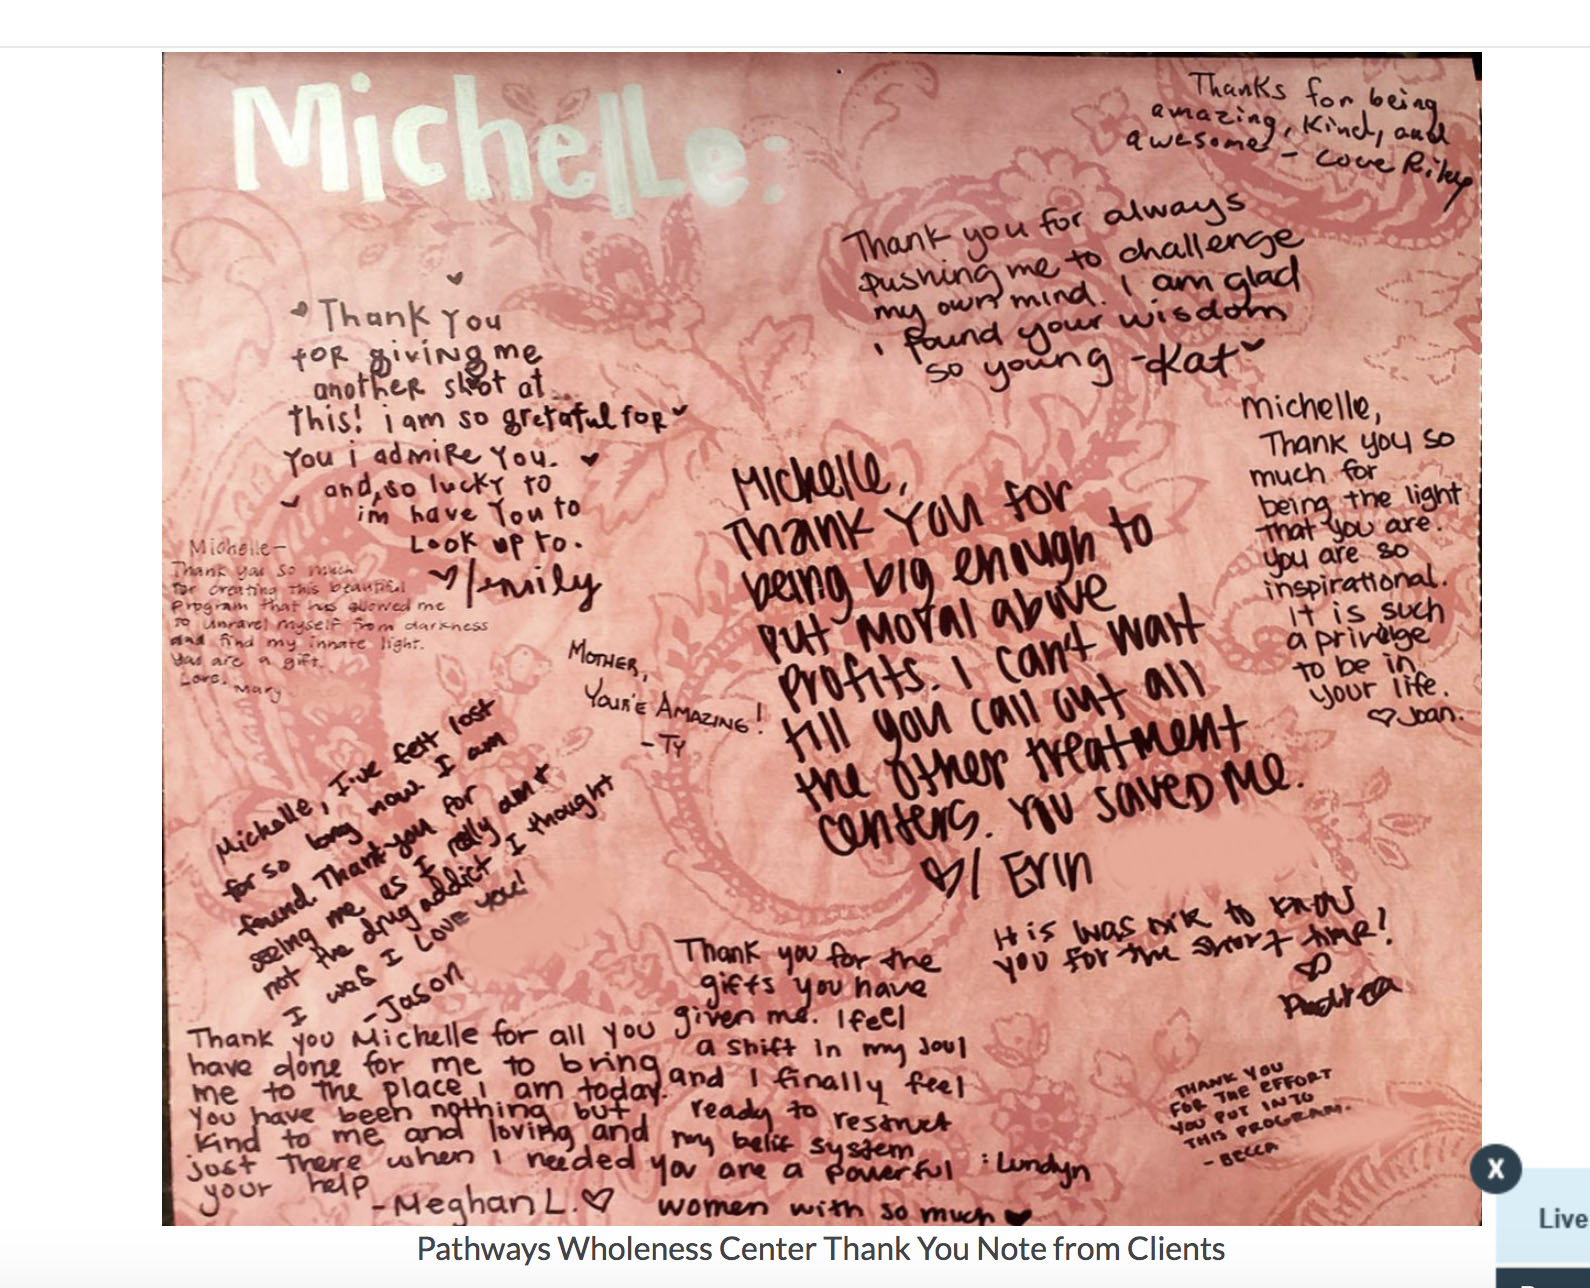 Michelle:
Thanks for being
amazing, kind, and
awesome - Love Riley
Thank you for always
pushing me to challenge
my own mind. I am glad
I found your wisdom
so young -Kat
Thank You
for giving me
another shot at
this! i am so gretaful for
You i admire You.
and, so lucky to
im have You to
Look up to.
/emily
Michelle-
Thank you so much
for creating this beautiful
program that has allowed me
to unravel myself from darkness
and find my innate light.
You are a gift.
Love, Mary
Mother,
You're Amazing!
-Ty
Michelle,
Thank you for
being big enough to
put moral above
profits. I can't wait
till you call out all
the other treatment
centers. You saved me.
/ Erin
michelle,
Thank you so
much for
being the light
that you are.
you are so
inspirational.
It is such
a privelge
to be in
your life.
Joan.
Michelle, I've felt lost
for so long now I am
found. Thank you for
seeing me as I really am &
not the drug addict I thought
I was I Love you!
-Jason
Thank you Michelle for all you
have done for me to bring
me to the place I am today.
You have been nothing but
kind to me and loving and
just there when I needed
your help
-Meghan L.
Thank you for the
gifts you have
given me. I feel
a shift in my soul
and I finally feel
ready to
my belif system
you are a powerful : Lundyn
women with so much
It is was to know
you for the short time!
Andrea
THANK YOU
FOR THE EFFORT
YOU PUT INTO
THIS PROGRAM.
- BECCA
X
Live
Pathways Wholeness Center Thank You Note from Clients